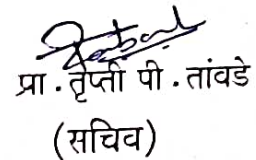 प्रा. तृप्ती पी. तांवडे
(सचिव)